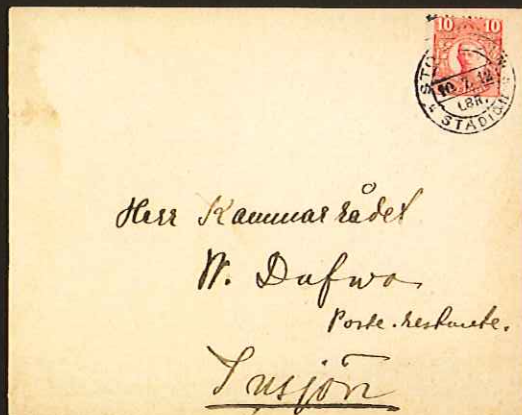 10 10
STO
10.7.12
LBR.
STADION
Herr Kammarrådet
W. Dufwa
Poste restante.
Insjön